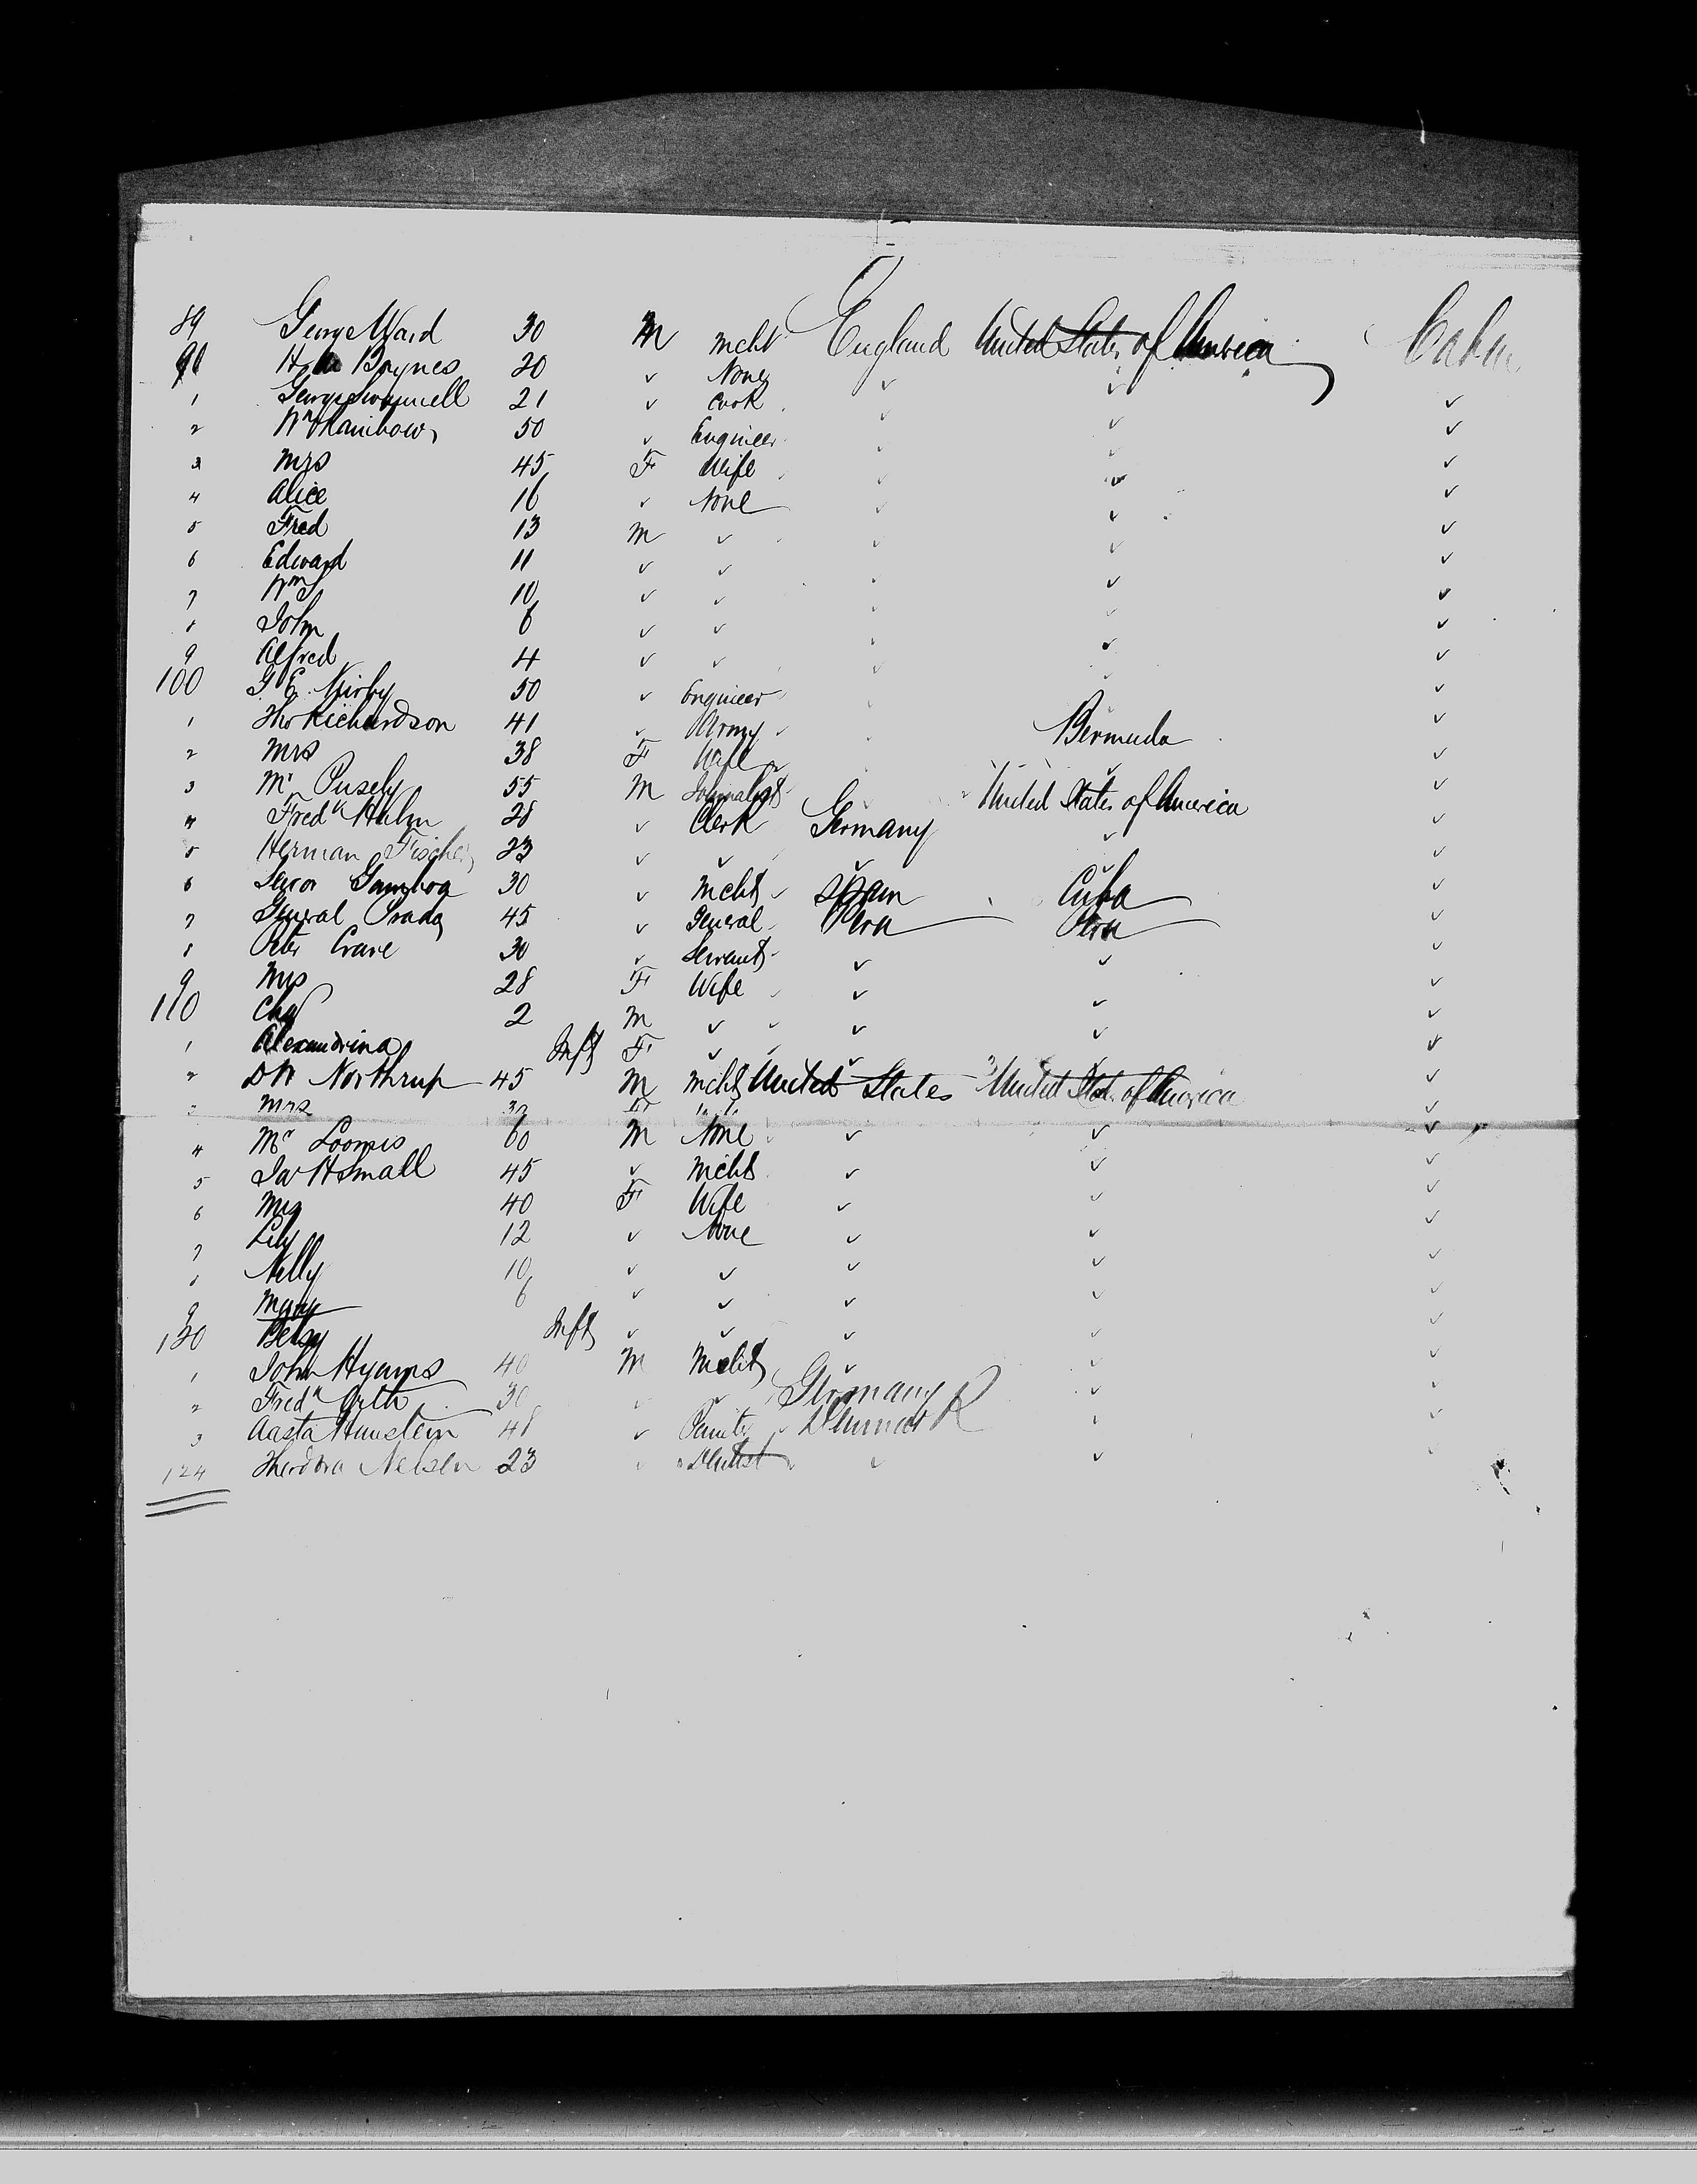 89 George Ward 30 M Mcht England United States of America Cabin
90 H Baynes 20 ✓ None ✓ ✓
1 George 21 ✓ Cook ✓ ✓
2 Wm Rainbow 50 ✓ Engineer ✓ ✓
3 Mrs 45 F Wife ✓ ✓ ✓
4 Alice 16 ✓ None ✓ ✓ ✓
5 Fred 13 M ✓ ✓ ✓ ✓
6 Edward 11 ✓ ✓ ✓ ✓
7 Wm 10 ✓ ✓ ✓ ✓
8 John 6 ✓ ✓ ✓ ✓
9 Alfred 4 ✓ ✓ ✓ ✓
100 G E Kirby 50 ✓ Engineer ✓
1 Tho Richardson 41 ✓ Army Bermuda ✓
2 Mrs 38 F Wife ✓ ✓
3 Mr Pusely 55 M Journalist ✓ United States of America ✓
4 Fredk Hulm 28 ✓ Clerk Germany ✓ ✓
5 Herman Fischer 23 ✓ ✓ ✓ ✓ ✓
6 Senor Gamboa 30 ✓ Mcht Spain Cuba ✓
7 General Prada 45 ✓ General Peru Peru ✓
8 Peter Crane 30 ✓ Servant ✓ ✓ ✓
9 Mrs 28 F Wife ✓ ✓ ✓
110 Chas 2 M ✓ ✓ ✓ ✓
1 Alexandrina Inft F ✓ ✓ ✓ ✓
2 D W Northrup 45 M Mcht United States United States of America ✓
3 Mrs F ✓
4 Mr Loomis 60 M None ✓ ✓ ✓
5 Jas H Small 45 ✓ Mcht ✓ ✓ ✓
6 Mrs 40 F Wife ✓ ✓ ✓
7 Lily 12 ✓ None ✓ ✓ ✓
8 Nelly 10 ✓ ✓ ✓ ✓ ✓
9 Mary 6 ✓ ✓ ✓ ✓ ✓
120 Betsy Inft ✓ ✓ ✓ ✓ ✓
1 John Hyams 40 M Mcht ✓ ✓ ✓
2 Fredk 30 ✓ ✓ Germany ✓ ✓
3 Aasta Hansteen 48 ✓ Painter Denmark ✓ ✓
124 Theodora Nelsen 23 ✓ Dentist ✓ ✓